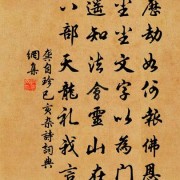 歷劫如何報佛恩
塵塵文字以為門
遙知法會靈山在
八部天龍禮我言
龔自珍己亥雜詩詞典
網集